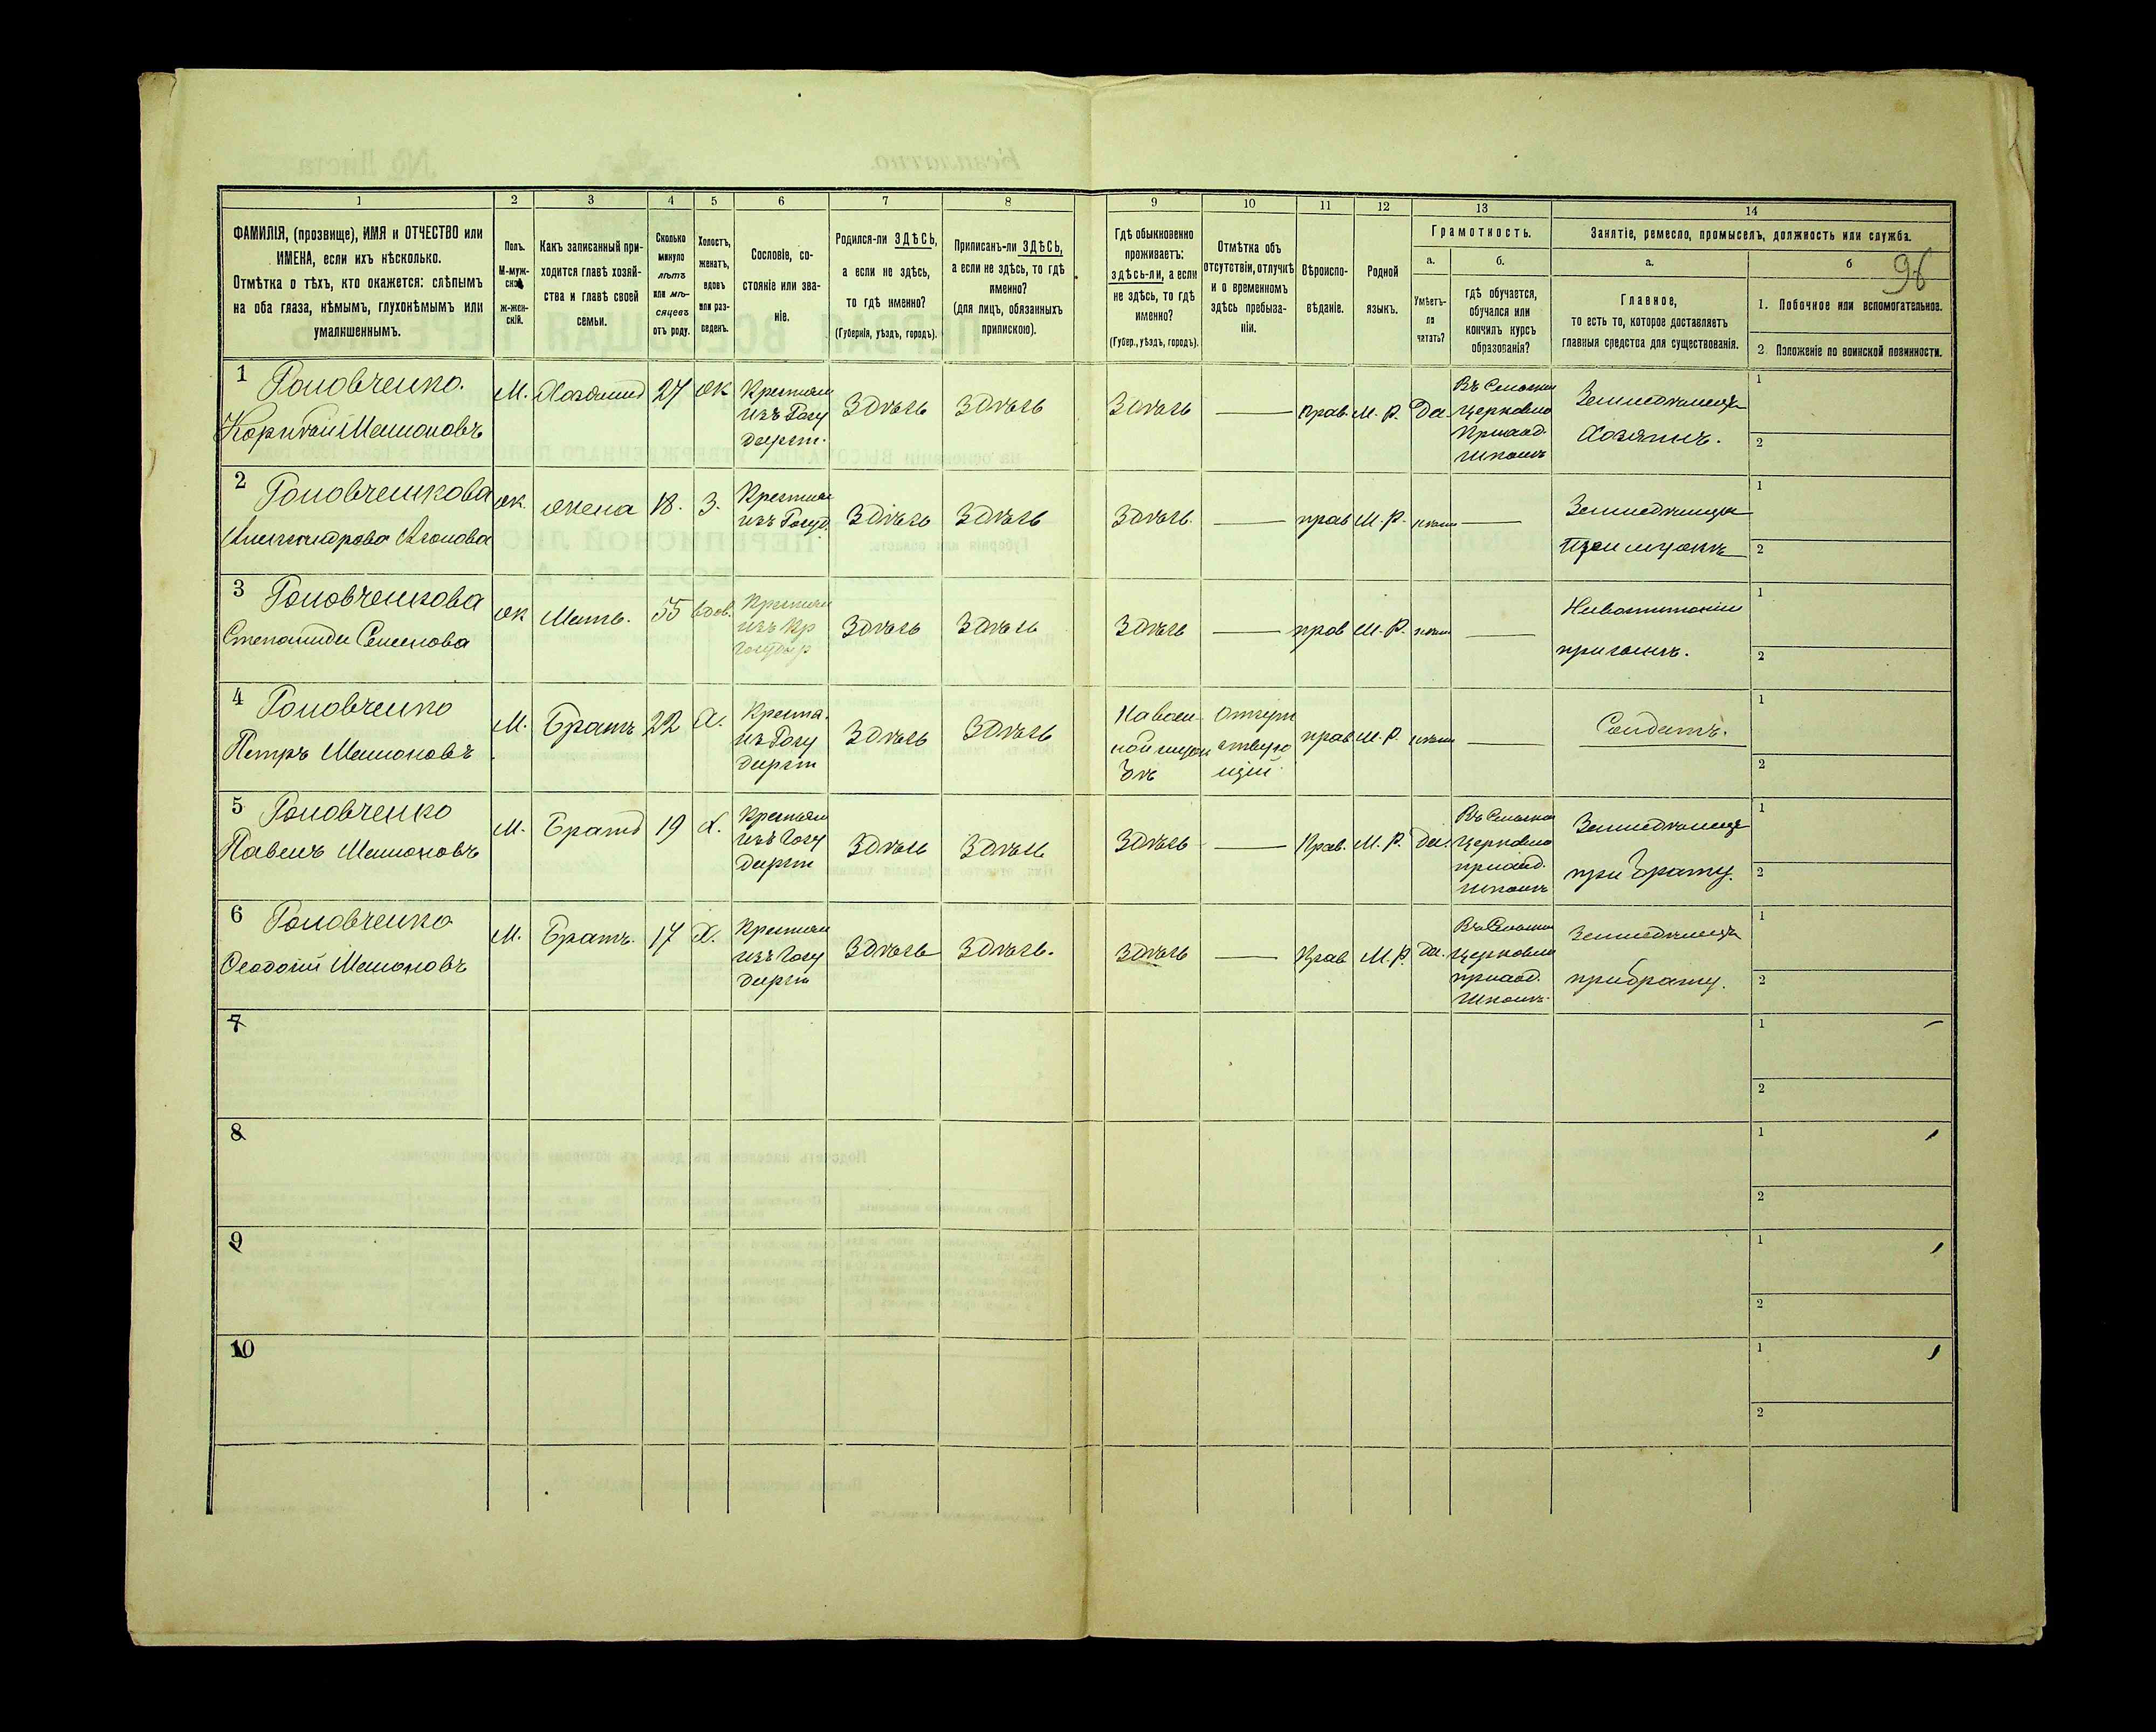 96
1 2 3 4 5 6 7 8 9 10 11 12 13 14
ФАМИЛІЯ, (прозвище), ИМЯ и ОТЧЕСТВО или
ИМЕНА, если ихъ нѣсколько.
Отмѣтка о тѣхъ, кто окажется: слѣпымъ
на оба глаза, нѣмымъ, глухонѣмымъ или
умалишеннымъ.
Полъ.
М-муж-
ской,
ж-жен-
скій.
Какъ записанный при-
ходится главѣ хозяй-
ства и главѣ своей
семьи.
Сколько
минуло
лѣтъ
или мѣ-
сяцевъ
отъ роду.
Холостъ,
женатъ,
вдовъ
или раз-
веденъ.
Сословіе, со-
стояніе или зва-
ніе.
Родился-ли ЗДѢСЬ,
а если не здѣсь,
то гдѣ именно?
(Губернія, уѣздъ, городъ).
Приписанъ-ли ЗДѢСЬ,
а если не здѣсь, то гдѣ
именно?
(для лицъ, обязанныхъ
припискою).
Гдѣ обыкновенно
проживаетъ:
здѣсь-ли, а если
не здѣсь, то гдѣ
именно?
(Губер., уѣздъ, городъ).
Отмѣтка объ
отсутствіи, отлучкѣ
и о временномъ
здѣсь пребыва-
ніи.
Вѣроиспо-
вѣданіе.
Родной
языкъ.
Грамотность.
а.
Умѣетъ-
ли
читать?
б.
Гдѣ обучается,
обучался или
кончилъ курсъ
образованія?
Занятіе, ремесло, промыселъ, должность или служба.
а.
Главное,
то есть то, которое доставляетъ
главныя средства для существованія.
б
1. Побочное или вспомогательное.
2. Положеніе по воинской повинности.
1 Головченко.
Мамоновъ
М. Хозяинъ 27 Ж
Крестьян
изъ Госу
дарст.
Здѣсь Здѣсь Здѣсь — прав. М. Р. Да
Церковно
Приход.
школѣ
Земледѣлецъ
Хозяинъ.
1
2
2 Головченкова
Ж. Жена 18. З.
Крестьян
изъ Госуд.
Здѣсь Здѣсь Здѣсь. — прав М. Р. —
Земледѣлица
При мужѣ
1
2
3 Головченкова
Степанида Семенова
Ж Мать. 55 вдов.
Крестьян
изъ Кр
Государ
Здѣсь Здѣсь Здѣсь — прав М. Р. —
1
2
4 Головченко
Петръ Мамоновъ
М. Братъ 22 Х.
Крестья.
изъ Госу
дарст
Здѣсь Здѣсь
Отсут
ствую
щій.
прав М. Р. —
Солдатъ.
1
2
5 Головченко
Павелъ Мамоновъ
М. Братъ 19 Х.
Крестьян
изъ Госу
дарст
Здѣсь Здѣсь Здѣсь — Прав. М. Р. Да.
Церковно
приход.
школѣ
Земледѣлецъ
при брату.
1
2
6 Головченко
Феодосій Мамоновъ
М. Братъ. 17 Х.
Крестьян
изъ Госу
дарст
Здѣсь Здѣсь. Здѣсь — Прав М. Р. Да.
Церковно
приход.
школѣ
Земледѣлецъ
при брату.
1
2
7
1
2
8
1
2
9
1
2
10
1
2